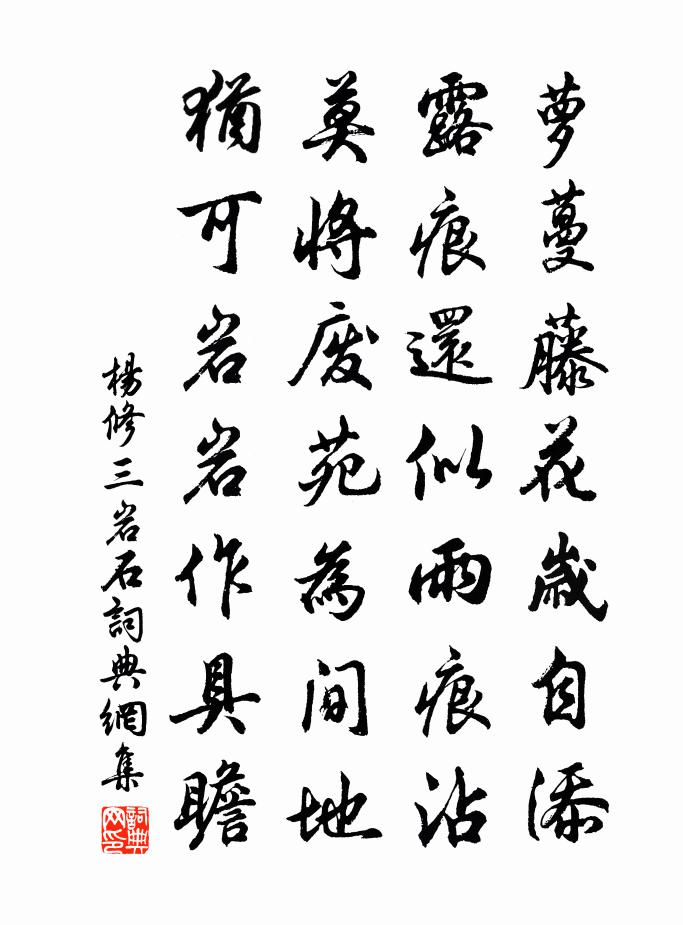 萝蔓藤花歲自添
露痕還似雨痕沾
莫將废苑為间地
猶可岩岩作具瞻
楊修三岩石詞典網集
詞典网印